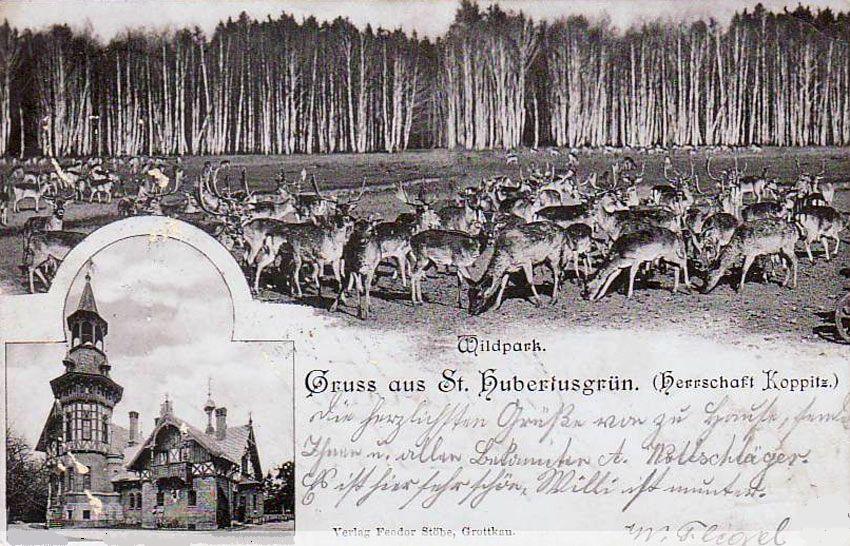 Wildpark.
Gruss aus St. Hubertusgrün. (Herrschaft Koppitz.)
Die herzlichsten Grüße von zu Hause, send
Ihnen u. allen Bekannten A. Nottschläger.
Es ist hier sehr schön, Willi ist munter.
W. Fliegel
Verlag Feodor Stöbe, Grottkau.